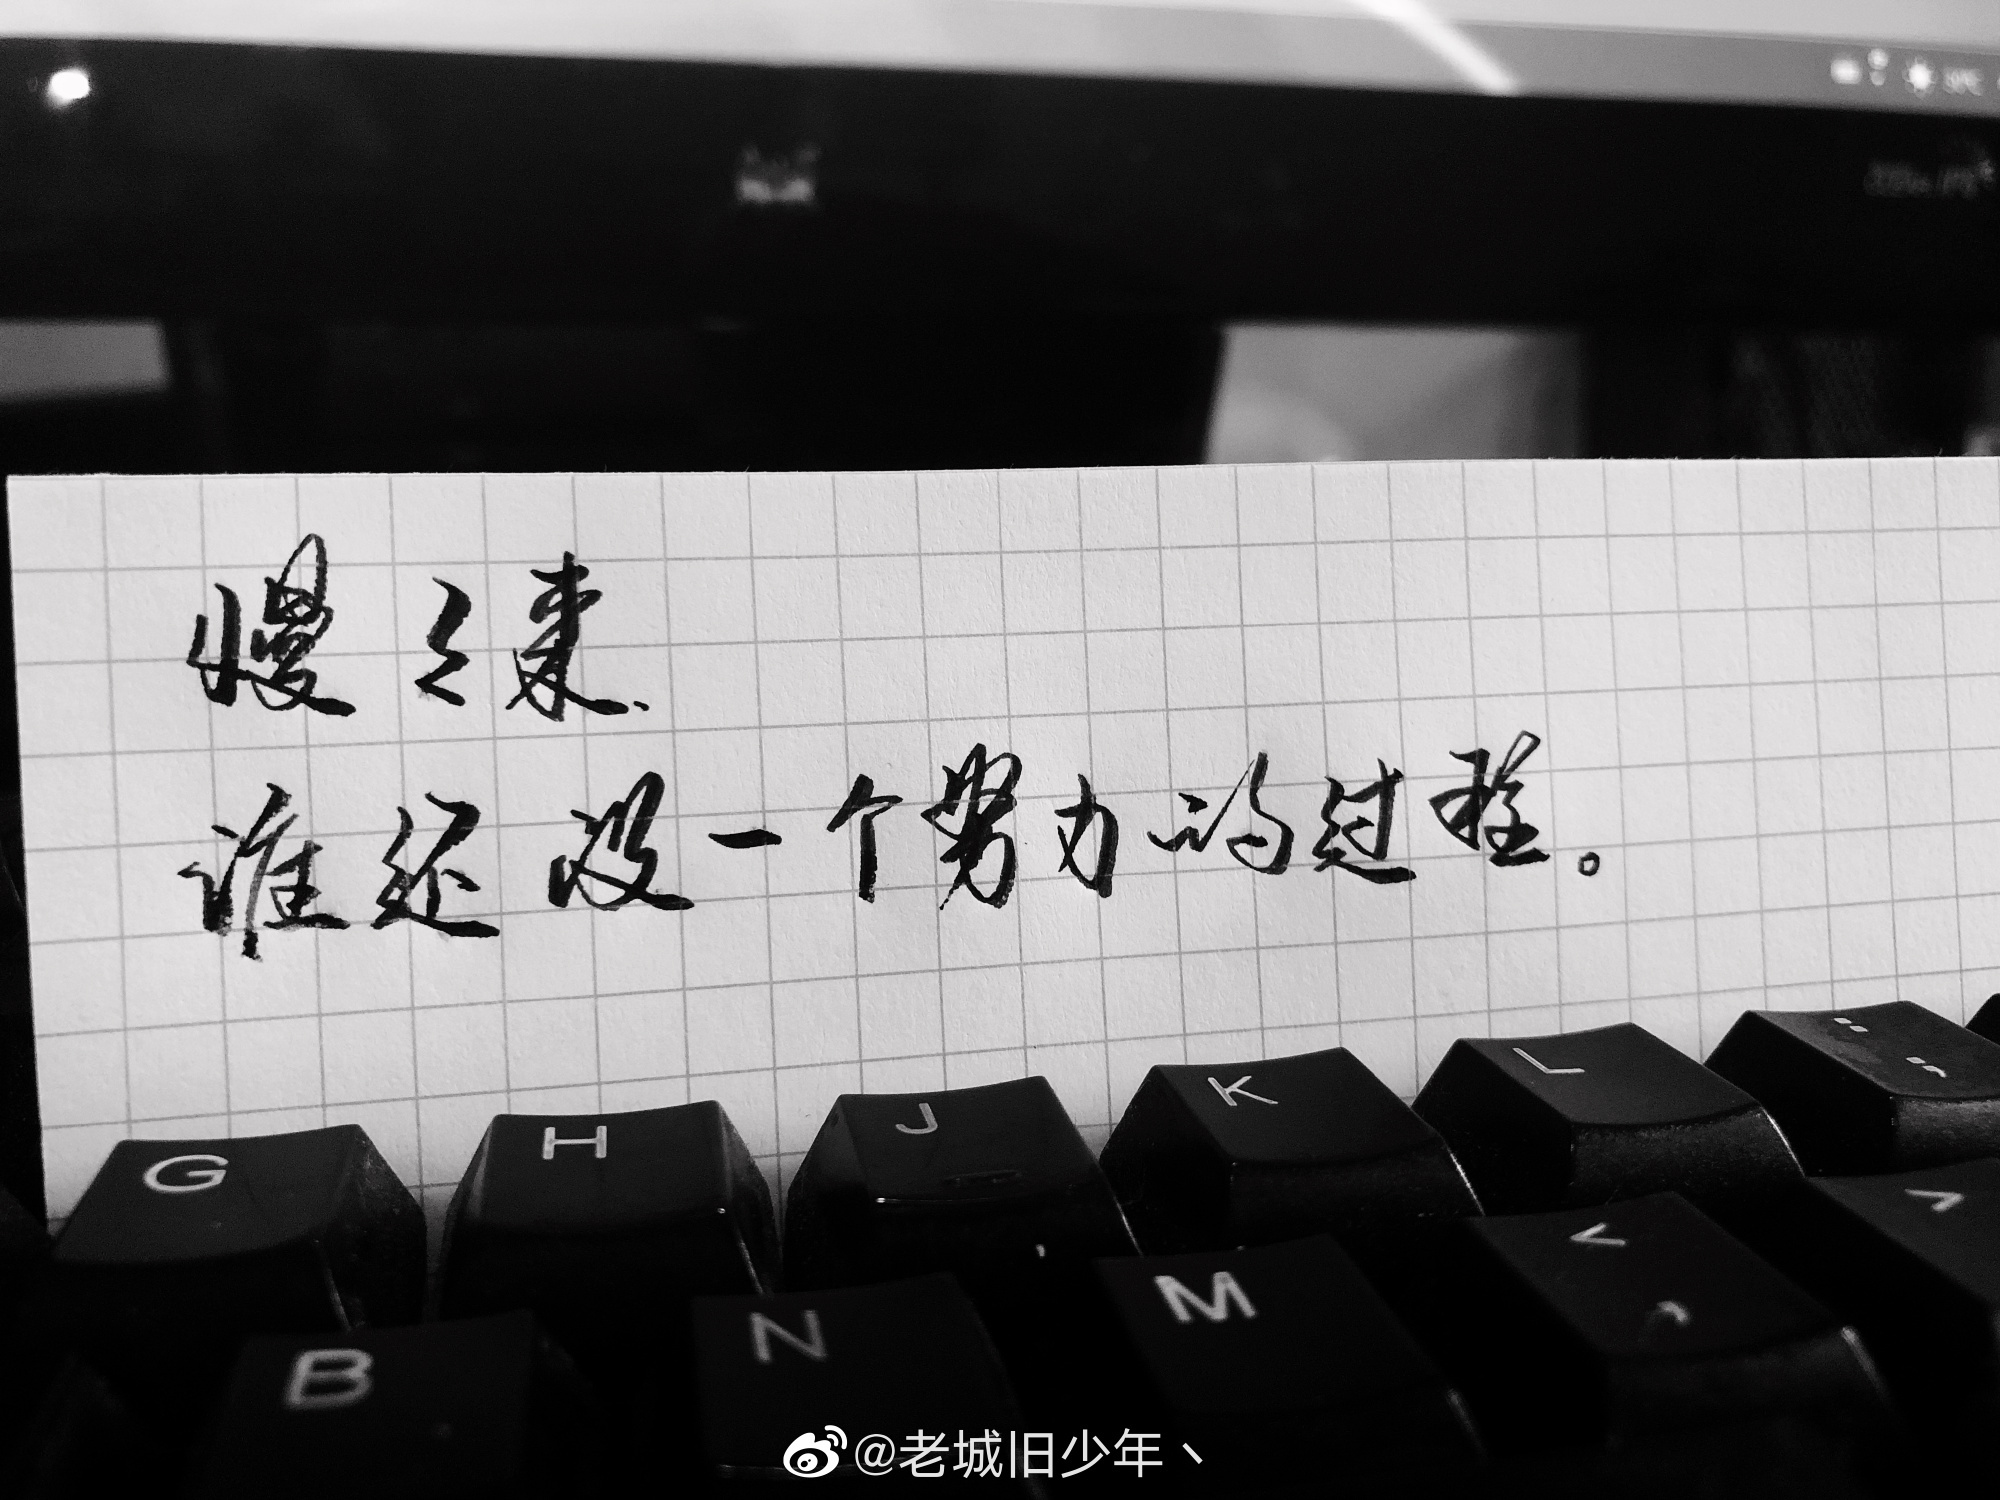 慢々来、
谁还没一个努力的过程。
G H J K L : ;
B N M < , >
@老城旧少年丶